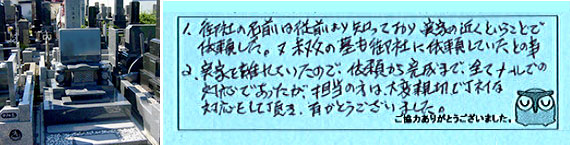 1. 御社の名前は従前より知っており 実家の近くということで
依頼した。又 親友の墓も御社に依頼していたとの事
2. 実家を離れていたので、依頼から完成まで、全てメールでの
対応であったが、担当の方は、大変親切で丁ネイな
対応をして頂き、有がとうございました。
ご協力ありがとうございました。